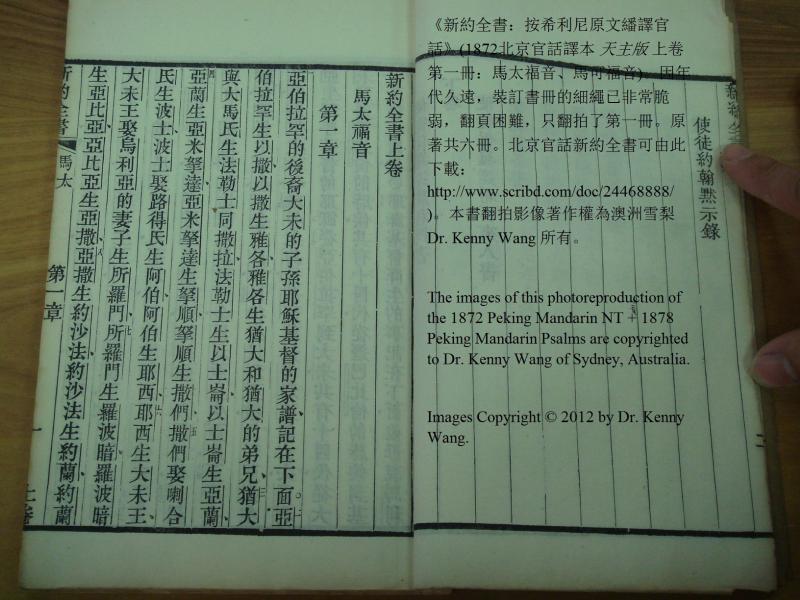 《新約全書：按希利尼原文繙譯官
話》(1872北京官話譯本 天主版 上卷
第一冊：馬太福音、馬可福音)。因年
代久遠，裝訂書冊的細繩已非常脆
弱，翻頁困難，只翻拍了第一冊。原
著共六冊。北京官話新約全書可由此
下載：
http://www.scribd.com/doc/24468888/
)。本書翻拍影像著作權為澳洲雪梨
Dr. Kenny Wang 所有。
The images of this photoreproduction of
the 1872 Peking Mandarin NT + 1878
Peking Mandarin Psalms are copyrighted
to Dr. Kenny Wang of Sydney, Australia.
Images Copyright © 2012 by Dr. Kenny
Wang.
新約全
使徒約翰黙示錄
二
新約全書上卷
馬太福音
第一章
亞伯拉罕的後裔大未的子孫耶穌基督的家譜記在下面亞
伯拉罕生以撒以撒生雅各雅各生猶大和猶大的弟兄猶大
與大馬氏生法勒士同撒拉法勒士生以士崙以士崙生亞蘭
亞蘭生亞米拏達亞米拏達生拏順拏順生撒們撒們娶喇合
氏生波士波士娶路得氏生阿伯阿伯生耶西耶西生大未王
大未王娶烏利亞的妻子生所羅門所羅門生羅波暗羅波暗
生亞比亞亞比亞生亞撒亞撒生約沙法約沙法生約蘭約蘭
新約全書 馬太 第一章 一 上卷